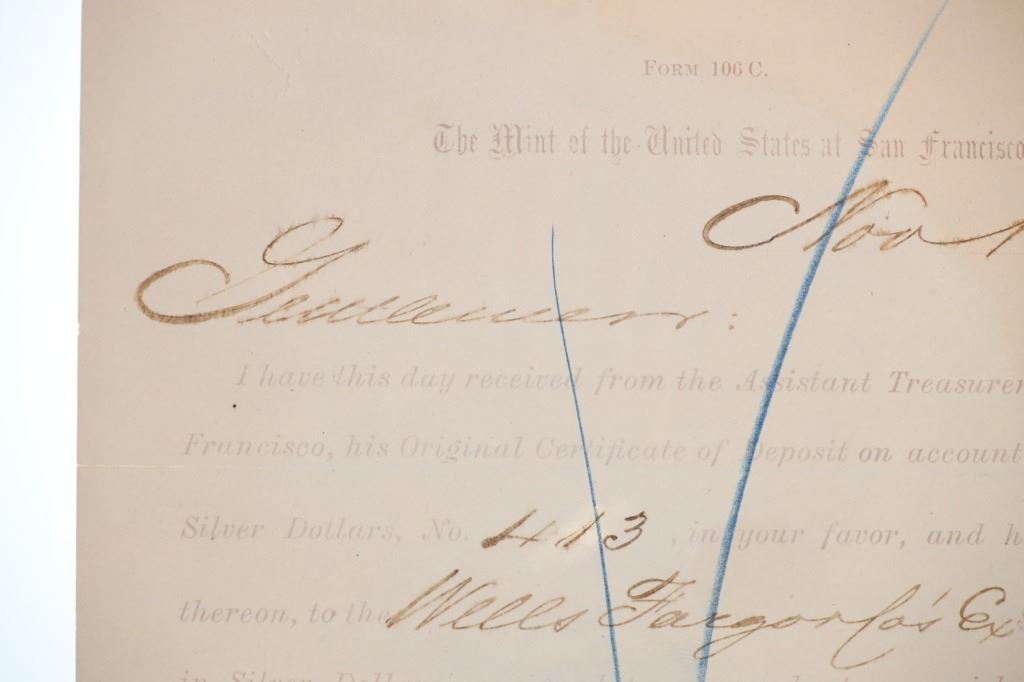 FORM 106 C.
The Mint of the United States at San Francisco
Nov 1
Gentlemen:
I have this day received from the Assistant Treasurer
Francisco, his Original Certificate of Deposit on account
Silver Dollars, No. 413, in your favor, and h
thereon, to the Wells Fargo & Co's Ex
in Silver Doll